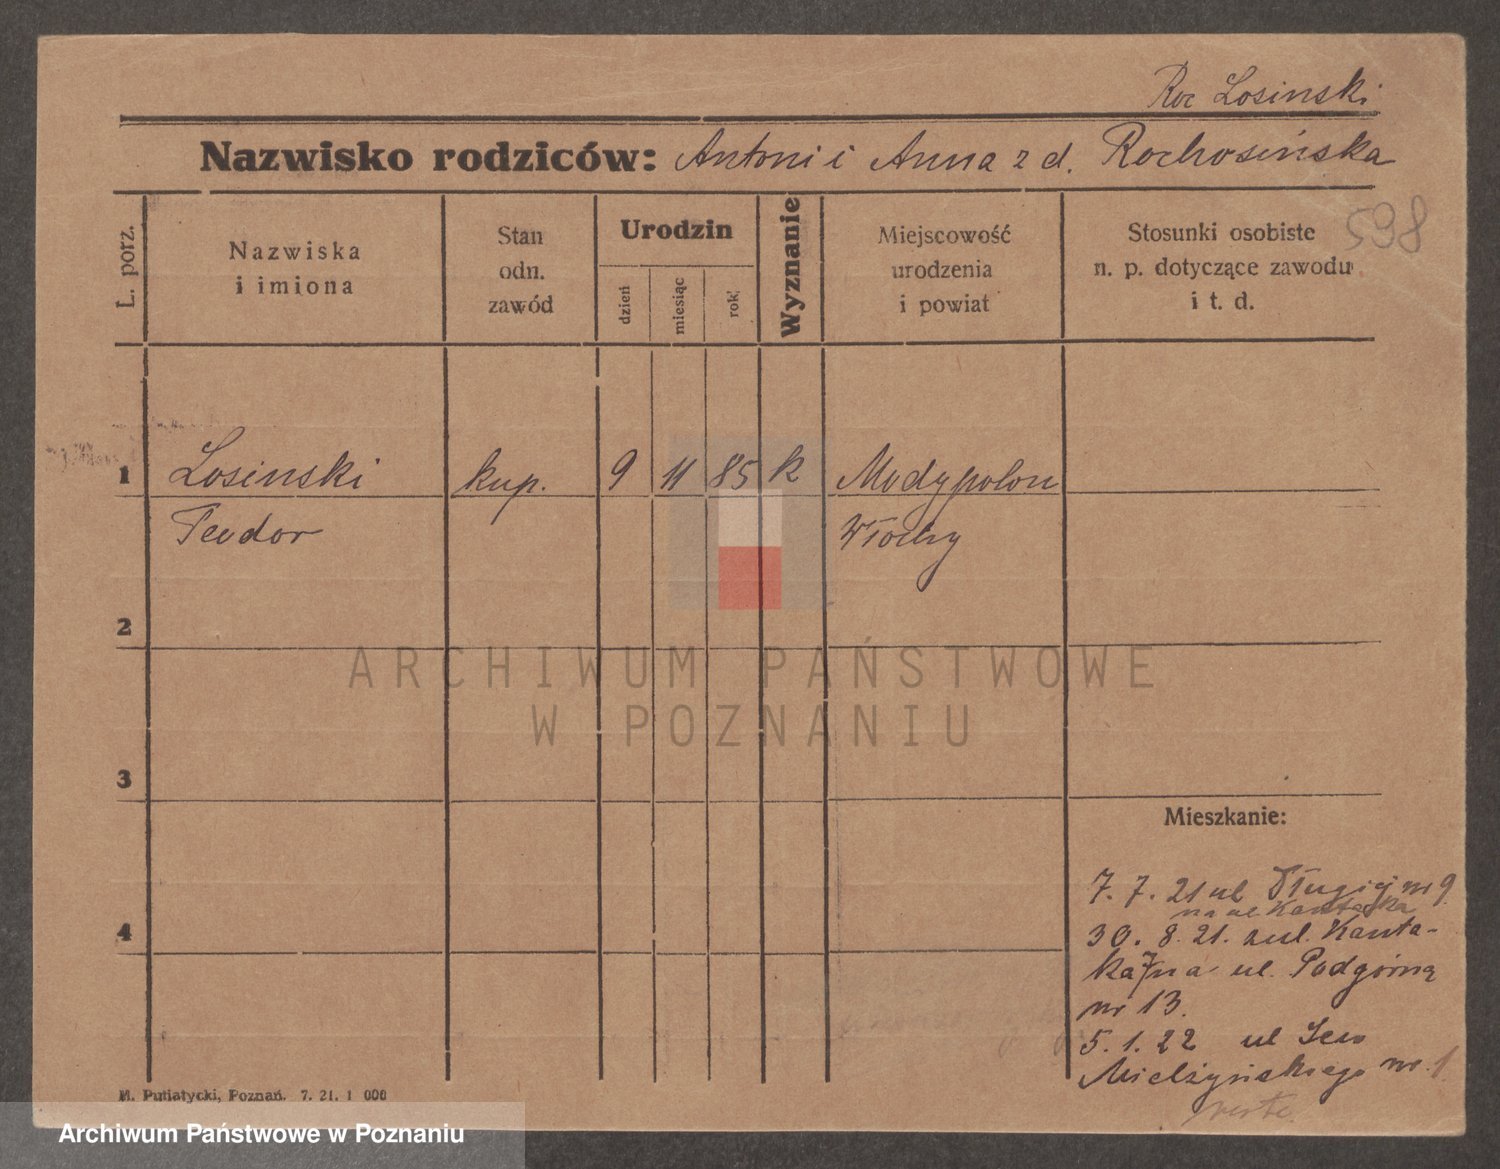 Losinski
Nazwisko rodziców: Antoni i Anna z d. Rochosińska
598
L. porz.
Nazwiska
i imiona
Stan
odn.
zawód
Urodzin
dzień
miesiąc
rok
Wyznanie
Miejscowość
urodzenia
i powiat
Stosunki osobiste
n. p. dotyczące zawodu
i t. d.
1 Losinski kup. 9 11 85 k Modypolon
Teodor Włochy
2
3
4
Mieszkanie:
7. 7. 21 ul Długiej nr 9
na ul Kantaka
30. 8. 21. z ul. Kanta-
ka 7 na ul. Podgórną
nr 13.
5. 1. 22 ul
Mielżyńskiego nr. 1
verte
M. Putiatycki, Poznań. 7. 21. 1 000
ARCHIWUM PAŃSTWOWE
W POZNANIU
Archiwum Państwowe w Poznaniu